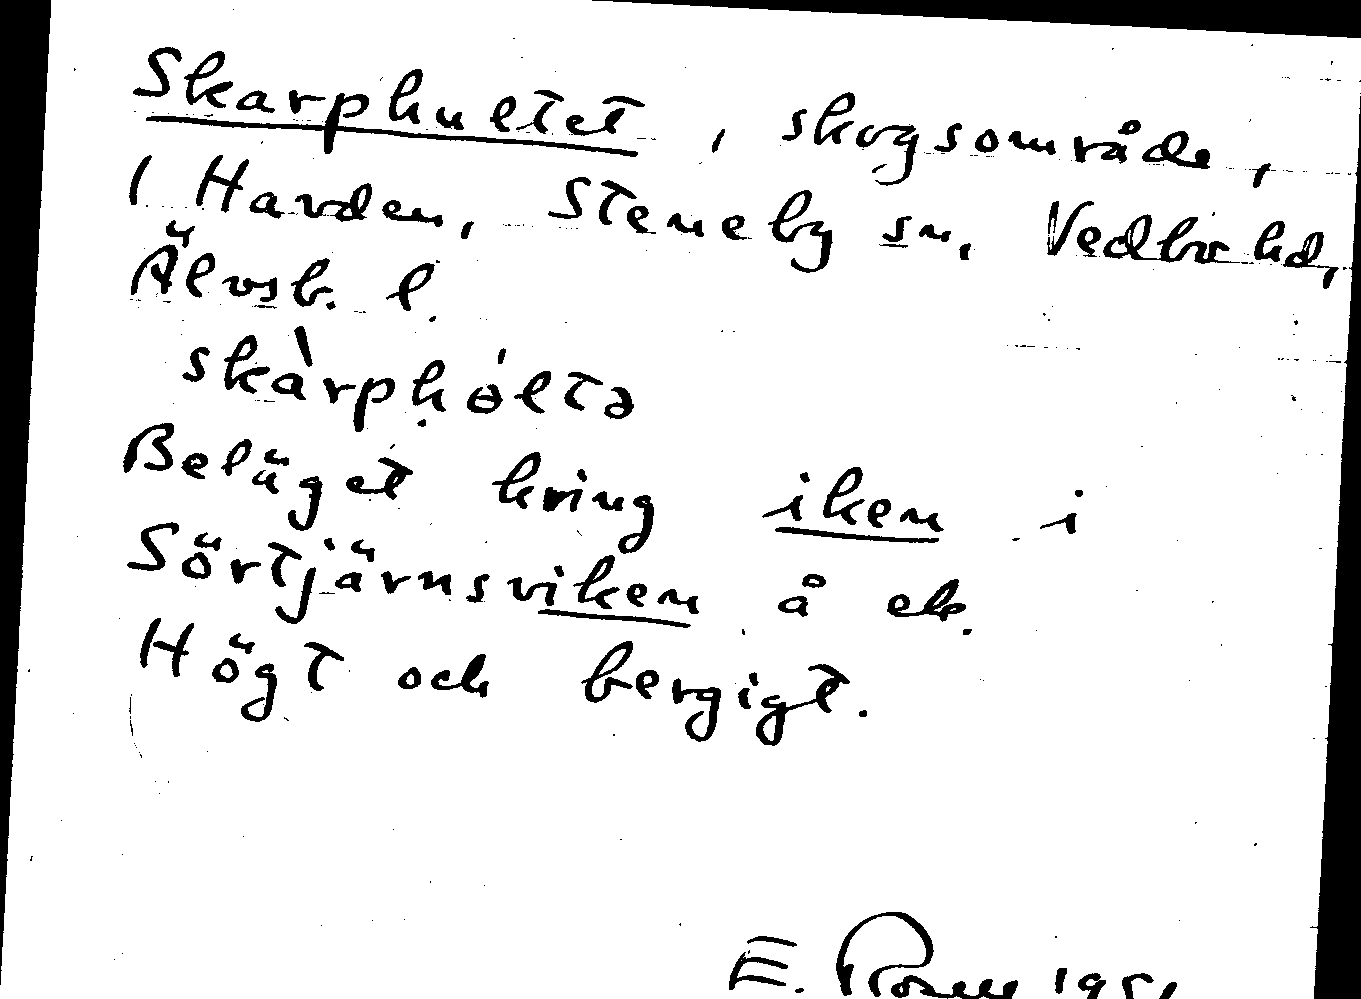 Skarphultet, skogsområde,
1 Harden, Steneby sn, Vedbo hd,
Älvsb. l.
skàrphɵ́ltə
Beläget kring iken i
Sörtjärnsviken å ek.
Högt och bergigt.
E.